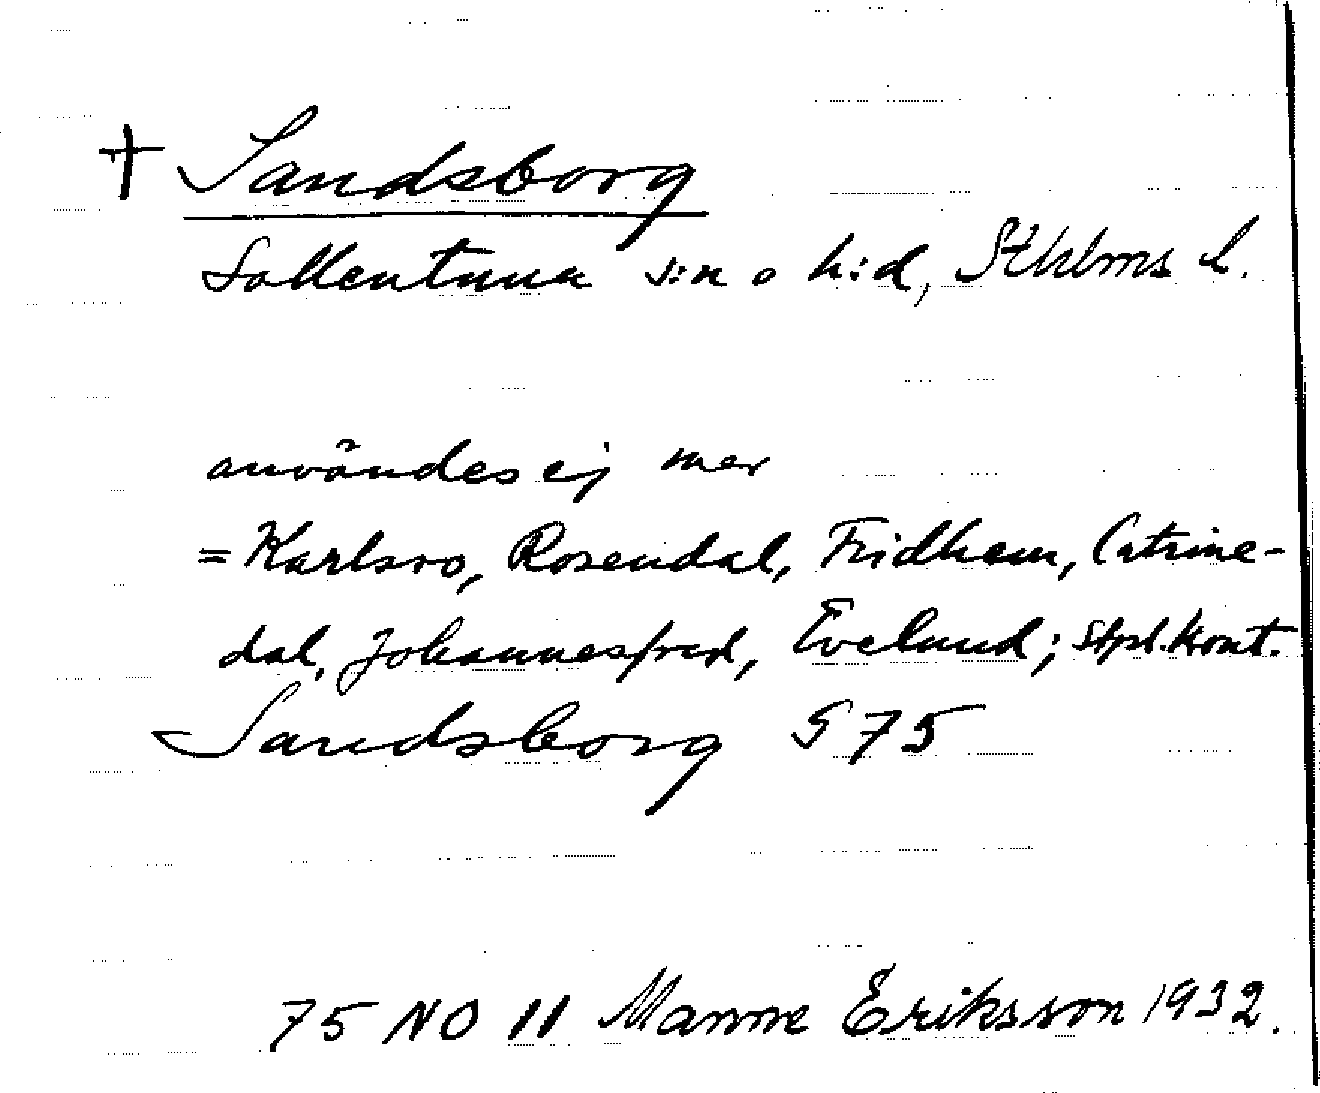 † Sandsborg
Sollentuna s:n o h:d, Sthlms l.
användes ej mer
= Karlsro, Rosendal, Fridhem, Catrine-
dal, Johannesfred, Evelund; Stpl. kont.
Sandsborg S 75
75 NO 11 Manne Eriksson 1932.